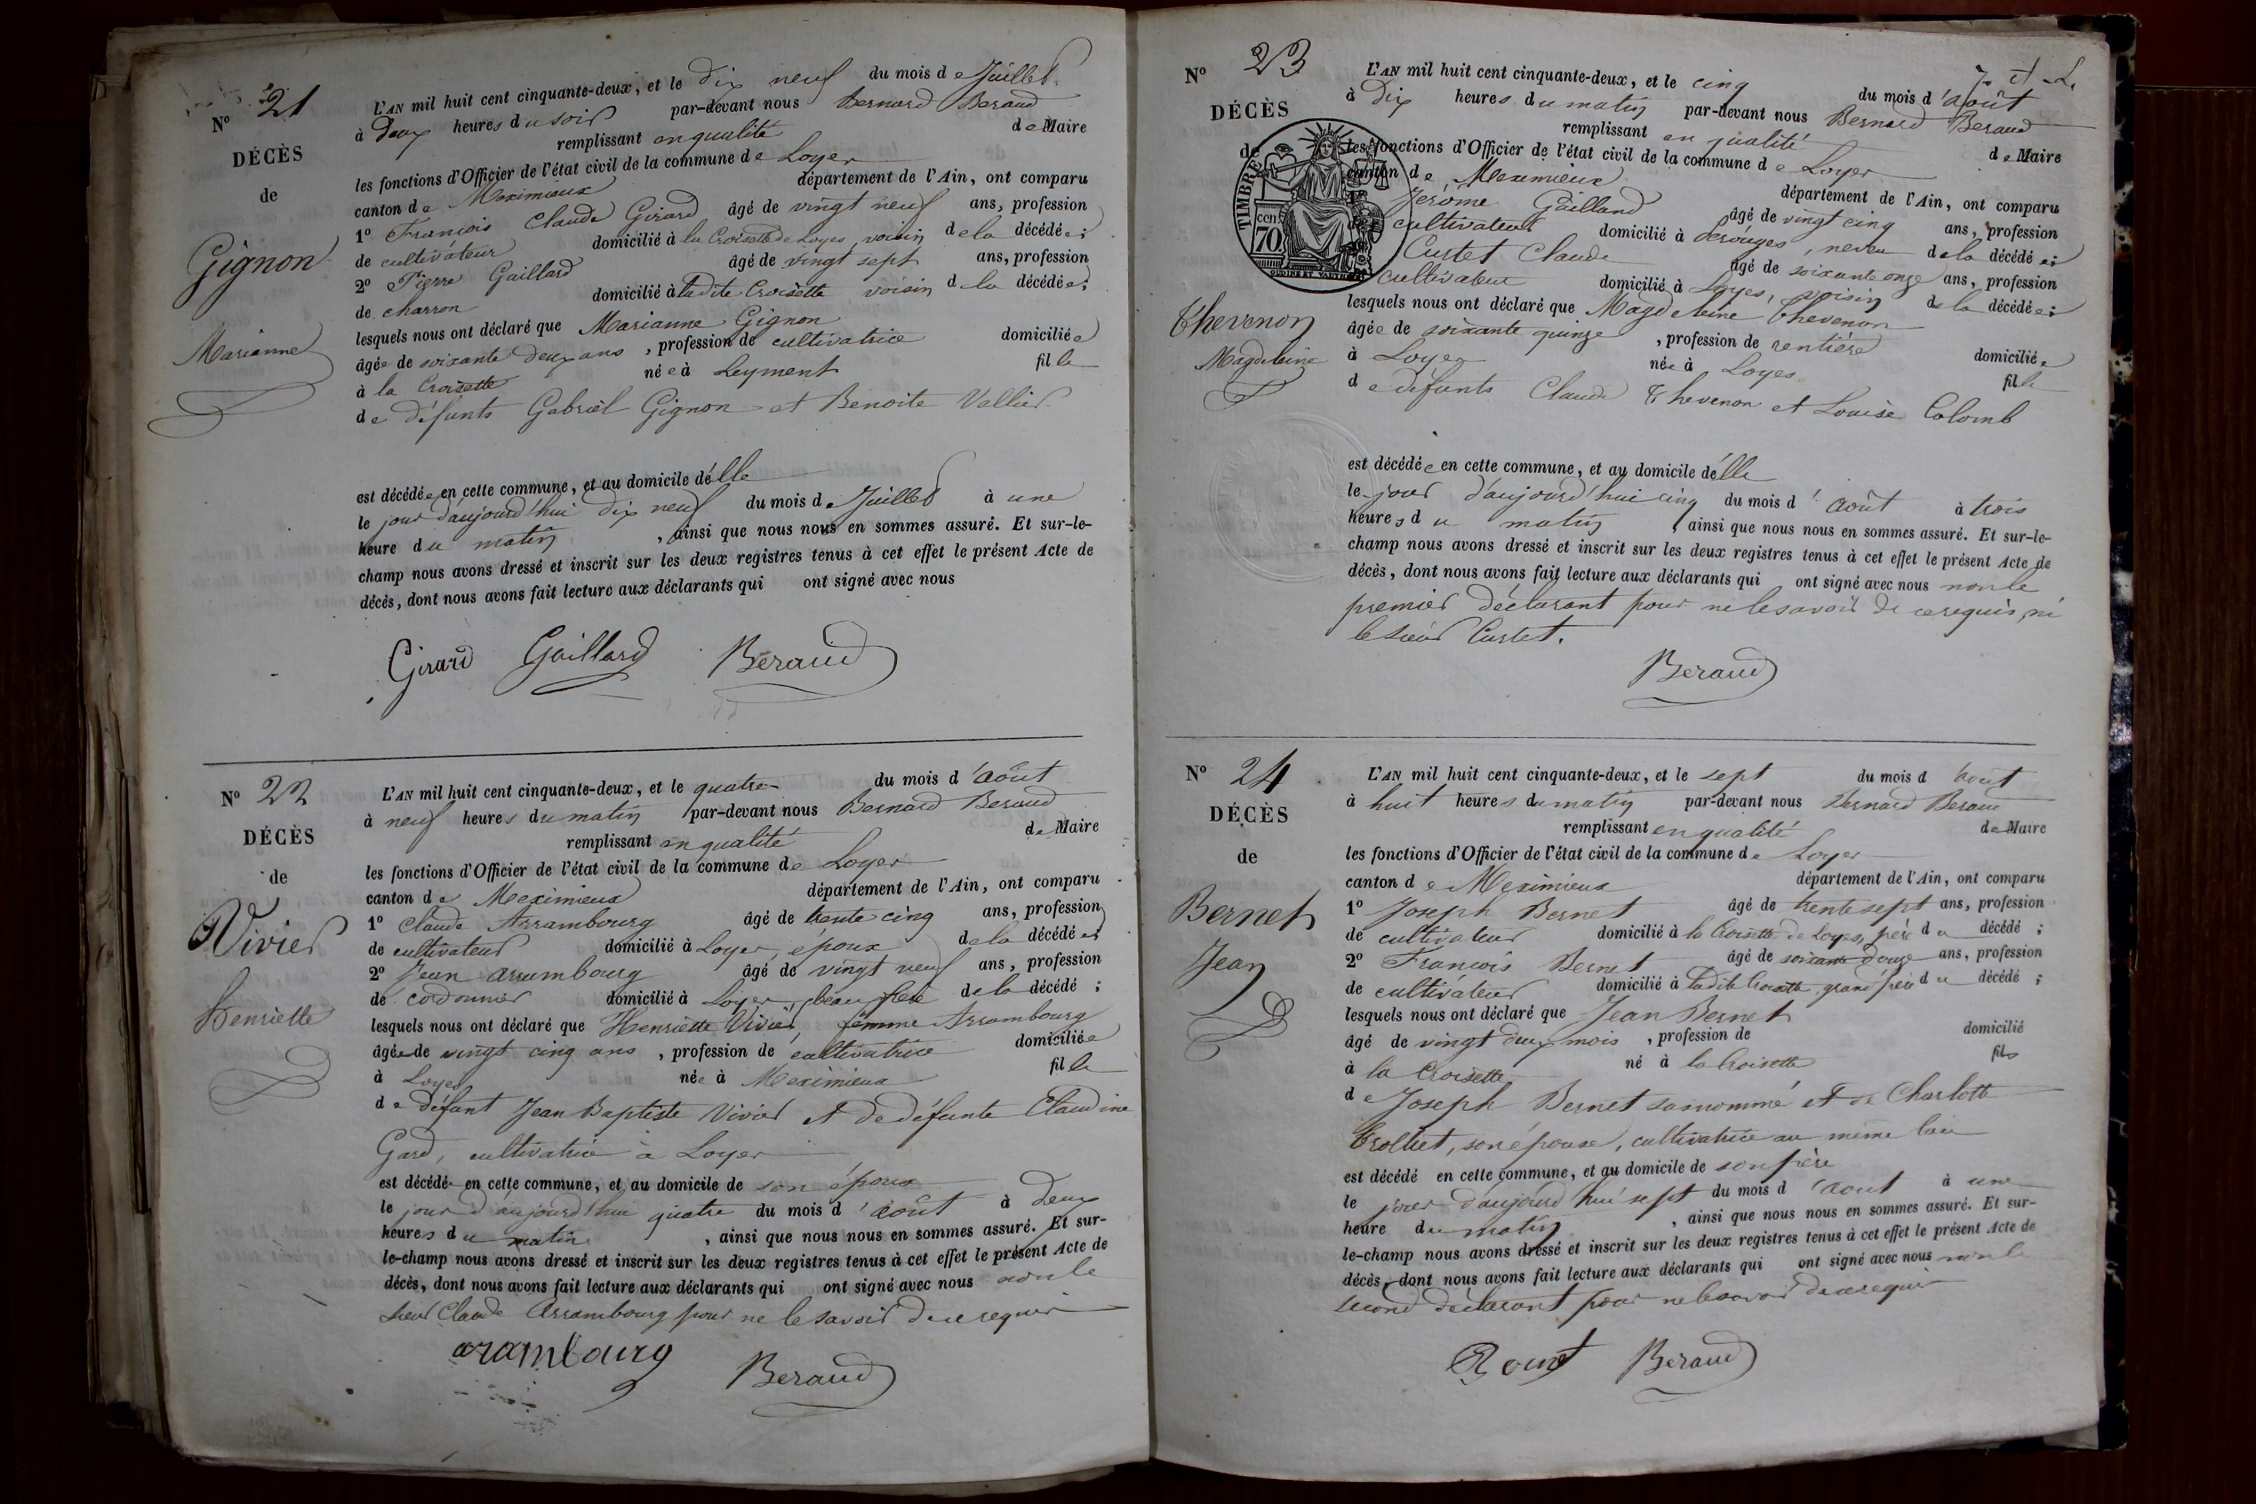 N° 21
DÉCÈS
de
Gignon
Marianne
L'AN mil huit cent cinquante-deux, et le dix neuf du mois de Juillet
à Deux heures du soir par-devant nous Bernard Beraud
remplissant en qualité de Maire
les fonctions d'Officier de l'état civil de la commune de Loyes
canton de Meximieux département de l'Ain, ont comparu
1° François Claude Girard âgé de vingt neuf ans, profession
de cultivateur domicilié à la Croisette de Loyes, voisin de la décédée;
2° Pierre Gaillard âgé de vingt sept ans, profession
de charron domicilié à ladite Croisette voisin de la décédée;
lesquels nous ont déclaré que Marianne Gignon
âgée de soixante deux ans, profession de cultivatrice domiciliée
à la Croisette née à Leyment fille
de défunts Gabriel Gignon et Benoite Vallier
est décédée en cette commune, et au domicile délle
le jour d'aujourd'hui dix neuf du mois de Juillet à une
heure du matin, ainsi que nous nous en sommes assuré. Et sur-le-
champ nous avons dressé et inscrit sur les deux registres tenus à cet effet le présent Acte de
décès, dont nous avons fait lecture aux déclarants qui ont signé avec nous
Girard Gaillard Beraud
N° 22
DÉCÈS
de
Vivier
Henriette
L'AN mil huit cent cinquante-deux, et le quatre du mois d'août
à neuf heures du matin par-devant nous Bernard Beraud
remplissant en qualité de Maire
les fonctions d'Officier de l'état civil de la commune de Loyes
canton de Meximieux département de l'Ain, ont comparu
1° Claude Arrambourg âgé de trente cinq ans, profession
de cultivateur domicilié à Loyes, époux de la décédée;
2° Jean Arrambourg âgé de vingt neuf ans, profession
de cordonnier domicilié à Loyes, beau frère de la décédé;
lesquels nous ont déclaré que Henriette Vivier, femme Arrambourg
âgée de vingt cinq ans, profession de cultivatrice domiciliée
à Loyes née à Meximieux fille
de défunt Jean Baptiste Vivier et de défunte Claudine
Gard, cultivatrice à Loyes
est décédée en cette commune, et au domicile de son époux
le jour d'aujourd'hui quatre du mois d'août à Deux
heures du matin, ainsi que nous nous en sommes assuré. Et sur-
le-champ nous avons dressé et inscrit sur les deux registres tenus à cet effet le présent Acte de
décès, dont nous avons fait lecture aux déclarants qui ont signé avec nous non le
sieur Claude Arrambourg pour ne le savoir de ce requis
arambourg Beraud
N° 23
DÉCÈS
de
TIMBRE
cen 70
Thevenon
Magdeleine
L'AN mil huit cent cinquante-deux, et le cinq du mois d'août
à Dix heures du matin par-devant nous Bernard Beraud
remplissant en qualité de Maire
les fonctions d'Officier de l'état civil de la commune de Loyes
canton de Meximieux département de l'Ain, ont comparu
Jérôme Gaillard âgé de vingt cinq ans, profession
cultivateur domicilié à Pérouges, neveu de la décédée;
Curtet Claude âgé de soixante onze ans, profession
cultivateur domicilié à Loyes, voisin de la décédée;
lesquels nous ont déclaré que Magdeleine Thevenon
âgée de soixante quinze, profession de rentière domiciliée
à Loyes née à Loyes fille
de défunts Claude Thevenon et Louise Colomb
est décédée en cette commune, et au domicile délle
le jour d'aujourd'hui cinq du mois d'août à trois
heures du matin, ainsi que nous nous en sommes assuré. Et sur-le-
champ nous avons dressé et inscrit sur les deux registres tenus à cet effet le présent Acte de
décès, dont nous avons fait lecture aux déclarants qui ont signé avec nous non le
premier déclarant pour ne le savoir de ce requis, ni
le sieur Curtet.
Beraud
N° 24
DÉCÈS
de
Bernet
Jean
L'AN mil huit cent cinquante-deux, et le sept du mois d'août
à huit heures du matin par-devant nous Bernard Beraud
remplissant en qualité de Maire
les fonctions d'Officier de l'état civil de la commune de Loyes
canton de Meximieux département de l'Ain, ont comparu
1° Joseph Bernet âgé de trente sept ans, profession
de cultivateur domicilié à la Croisette de Loyes, père du décédé;
2° François Bernet âgé de soixante douze ans, profession
de cultivateur domicilié à ladite Croisette, grand père du décédé;
lesquels nous ont déclaré que Jean Bernet
âgé de vingt deux mois, profession de domicilié
à la Croisette né à la Croisette fils
de Joseph Bernet susnommé et de Charlotte
Trolliet, son épouse, cultivatrice au même lieu
est décédé en cette commune, et au domicile de son père
le jour d'aujourd'hui sept du mois d'août à une
heure du matin, ainsi que nous nous en sommes assuré. Et sur-
le-champ nous avons dressé et inscrit sur les deux registres tenus à cet effet le présent Acte de
décès, dont nous avons fait lecture aux déclarants qui ont signé avec nous non le
second déclarant pour ne le savoir de ce requis
Beraud